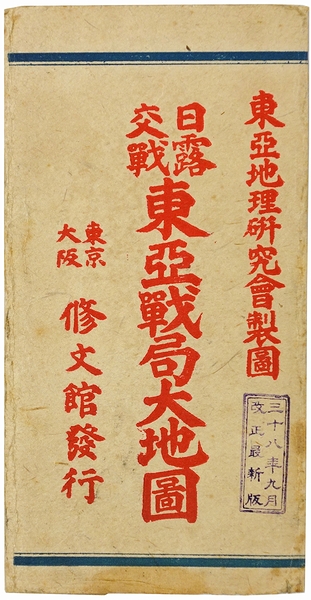 東亞地理研究會製圖
三十八年九月
改正最新版
日露
交戰
東亞戰局大地圖
東京
大阪
修文館發行